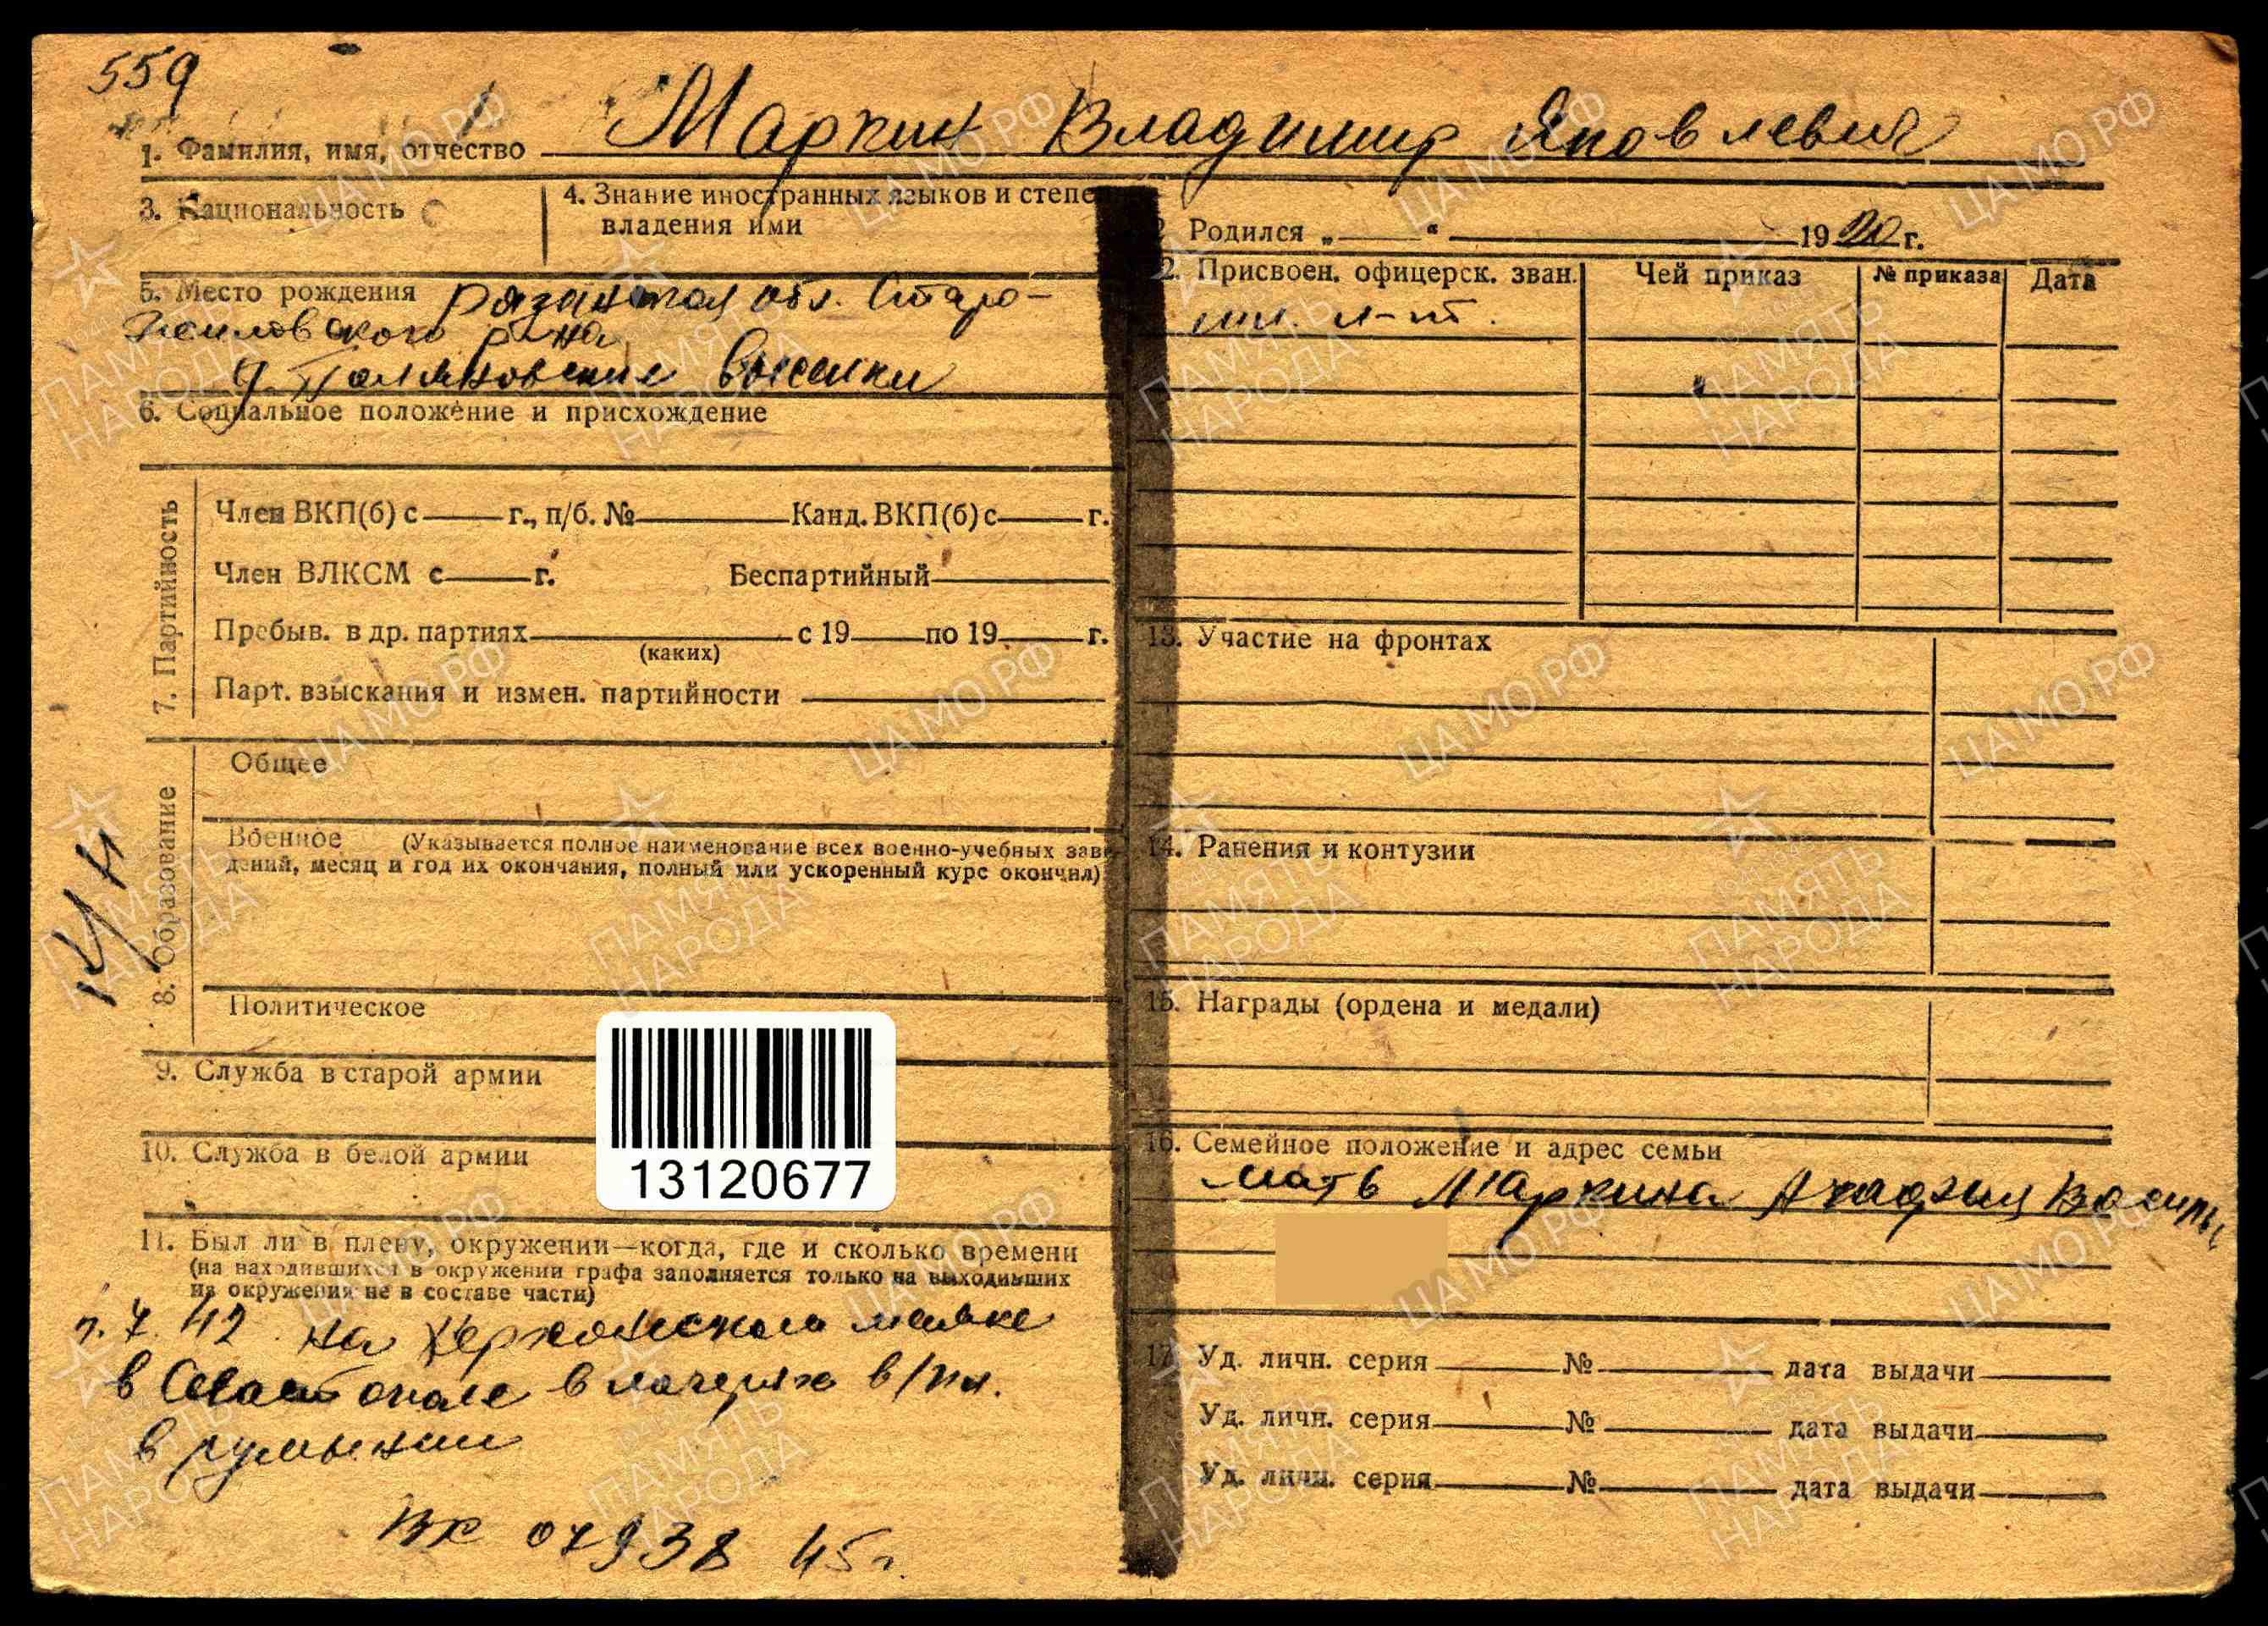 559
1. Фамилия, имя, отчество Маркин Владимир Яковлевич
3. Национальность
4. Знание иностранных языков и степе
владения ими
5. Место рождения Рязанская обл. Старо-
жиловского р-на
д. Поляновские Выселки
6. Социальное положение и присхождение
7. Партийность
Член ВКП(б) с г., п/б. № Канд. ВКП(б) с г.
Член ВЛКСМ с г. Беспартийный
Пребыв. в др. партиях с 19 по 19 г.
(каких)
Парт. взыскания и измен. партийности
8. Образование
Общее
Военное (Указывается полное наименование всех военно-учебных заве
дений, месяц и год их окончания, полный или ускоренный курс окончил)
Политическое
9. Служба в старой армии
10. Служба в белой армии
13120677
11. Был ли в плену, окружении—когда, где и сколько времени
(на находившихся в окружении графа заполняется только на выходивших
из окружения не в составе части)
42 на Херсонском маяке
в Севастополе в лагерях в/пл.
в Румынии
ВК 07938 45г.
2 Родился „ “ 1920 г.
2. Присвоен. офицерск. зван. Чей приказ № приказа Дата
мл. л-т.
13. Участие на фронтах
14. Ранения и контузии
15. Награды (ордена и медали)
16. Семейное положение и адрес семьи
мать Маркина Агафья Василь
17. Уд. личн. серия № дата выдачи
Уд. личн. серия № дата выдачи
Уд. личн. серия № дата выдачи
ЦАМО.РФ
ПАМЯТЬ
НАРОДА